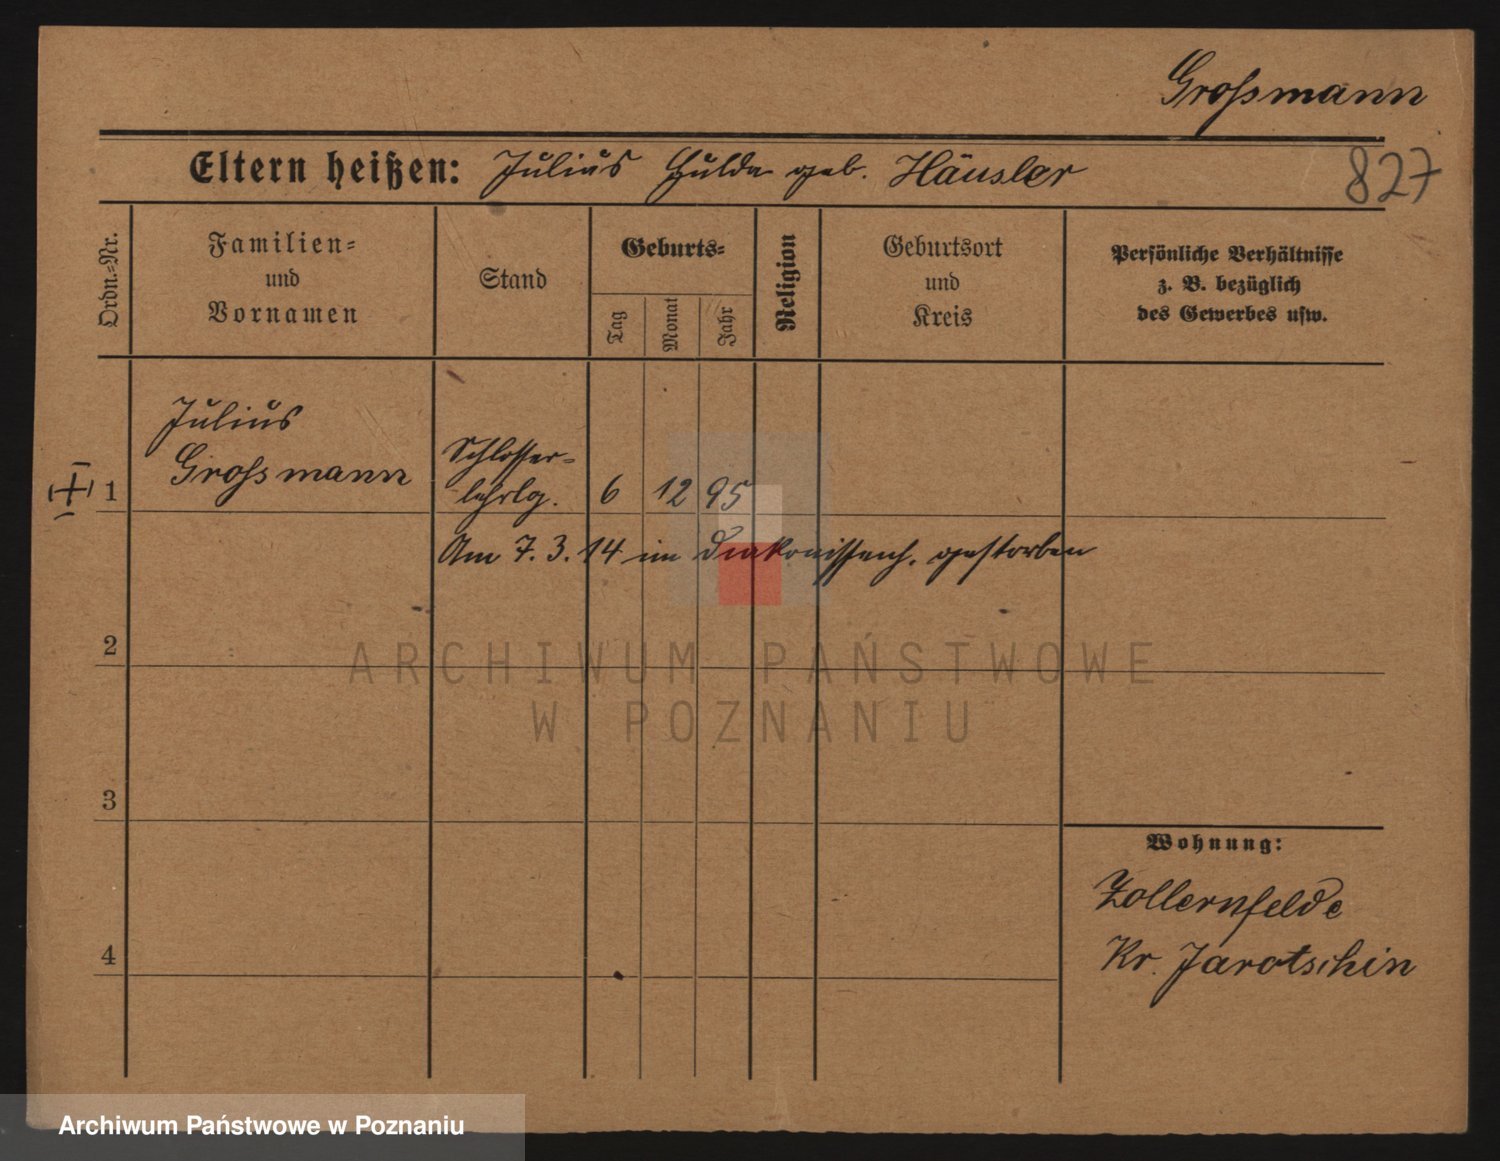 Großmann
Eltern heißen: Julius Hulda geb. Häusler
827
Ordn.-Nr.
Familien- und Vornamen
Stand
Geburts-
Tag
Monat
Jahr
Religion
Geburtsort und Kreis
Persönliche Verhältnisse
z. B. bezüglich
des Gewerbes usw.
Julius
Großmann
Schlosser-
lehrlg.
1
6 12 95
Am 7. 3. 14 im Diakonissenh. gestorben
2
ARCHIWUM PAŃSTWOWE
W POZNANIU
3
Wohnung:
Zollernfelde
4
Kr. Jarotschin
Archiwum Państwowe w Poznaniu